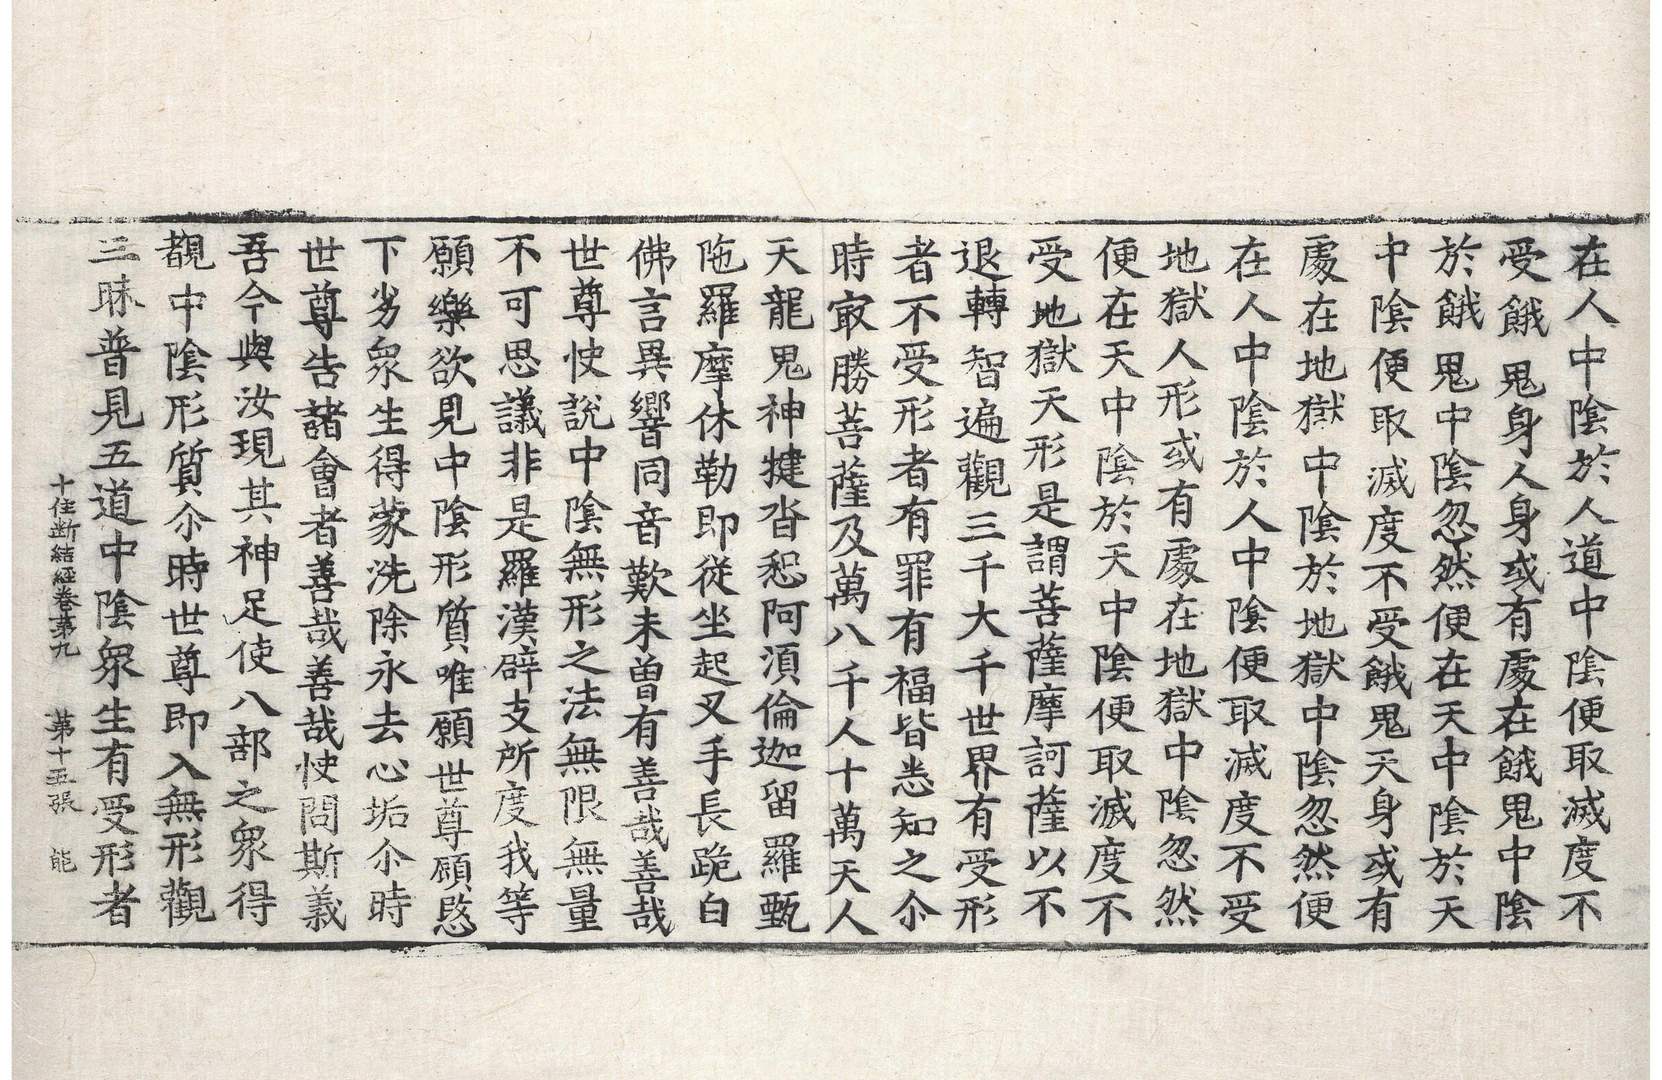 在人中陰於人道中陰便取滅度不
受餓鬼身人身或有處在餓鬼中陰
於餓鬼中陰忽然便在天中陰於天
中陰便取滅度不受餓鬼天身或有
處在地獄中陰於地獄中陰忽然便
在人中陰於人中陰便取滅度不受
地獄人形或有處在地獄中陰忽然
便在天中陰於天中陰便取滅度不
受地獄天形是謂菩薩摩訶薩以不
退轉智遍觀三千大千世界有受形
者不受形者有罪有福皆悉知之尒
時㝡勝菩薩及萬八千人十萬天人
天龍鬼神揵沓惒阿須倫迦留羅甄
陁羅摩休勒即從坐起叉手長跪白
佛言異響同音歎未曾有善哉善哉
世尊快說中陰無形之法無限無量
不可思議非是羅漢辟支所度我等
願樂欲見中陰形質唯願世尊顧愍
下劣衆生得蒙洗除永去心垢尒時
世尊告諸會者善哉善哉快問斯義
吾今與汝現其神足使八部之衆得
覩中陰形質尒時世尊即入無形觀
三昧普見五道中陰衆生有受形者
十住断結經卷第九 第十五張 能